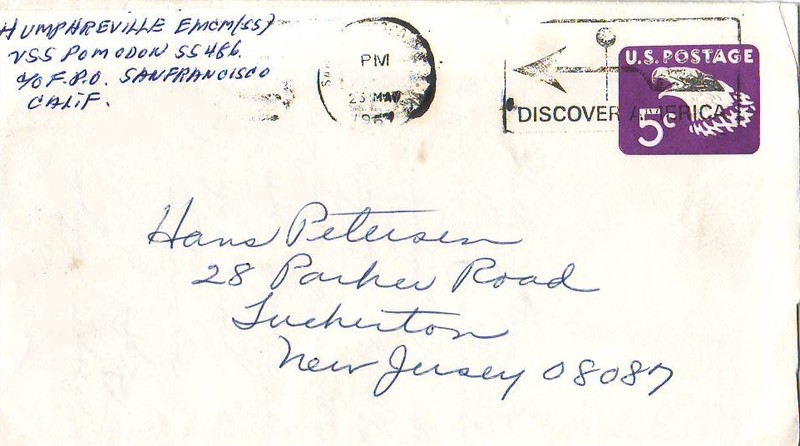 HUMPHREVILLE EMCM(SS)
USS POMODON SS486
c/o F.P.O. SANFRANCISCO
CALIF.
PM
23 MAY
196
DISCOVER AMERICA
U.S. POSTAGE
5¢
Hans Petersen
28 Parker Road
Tuckerton
New Jersey 08087